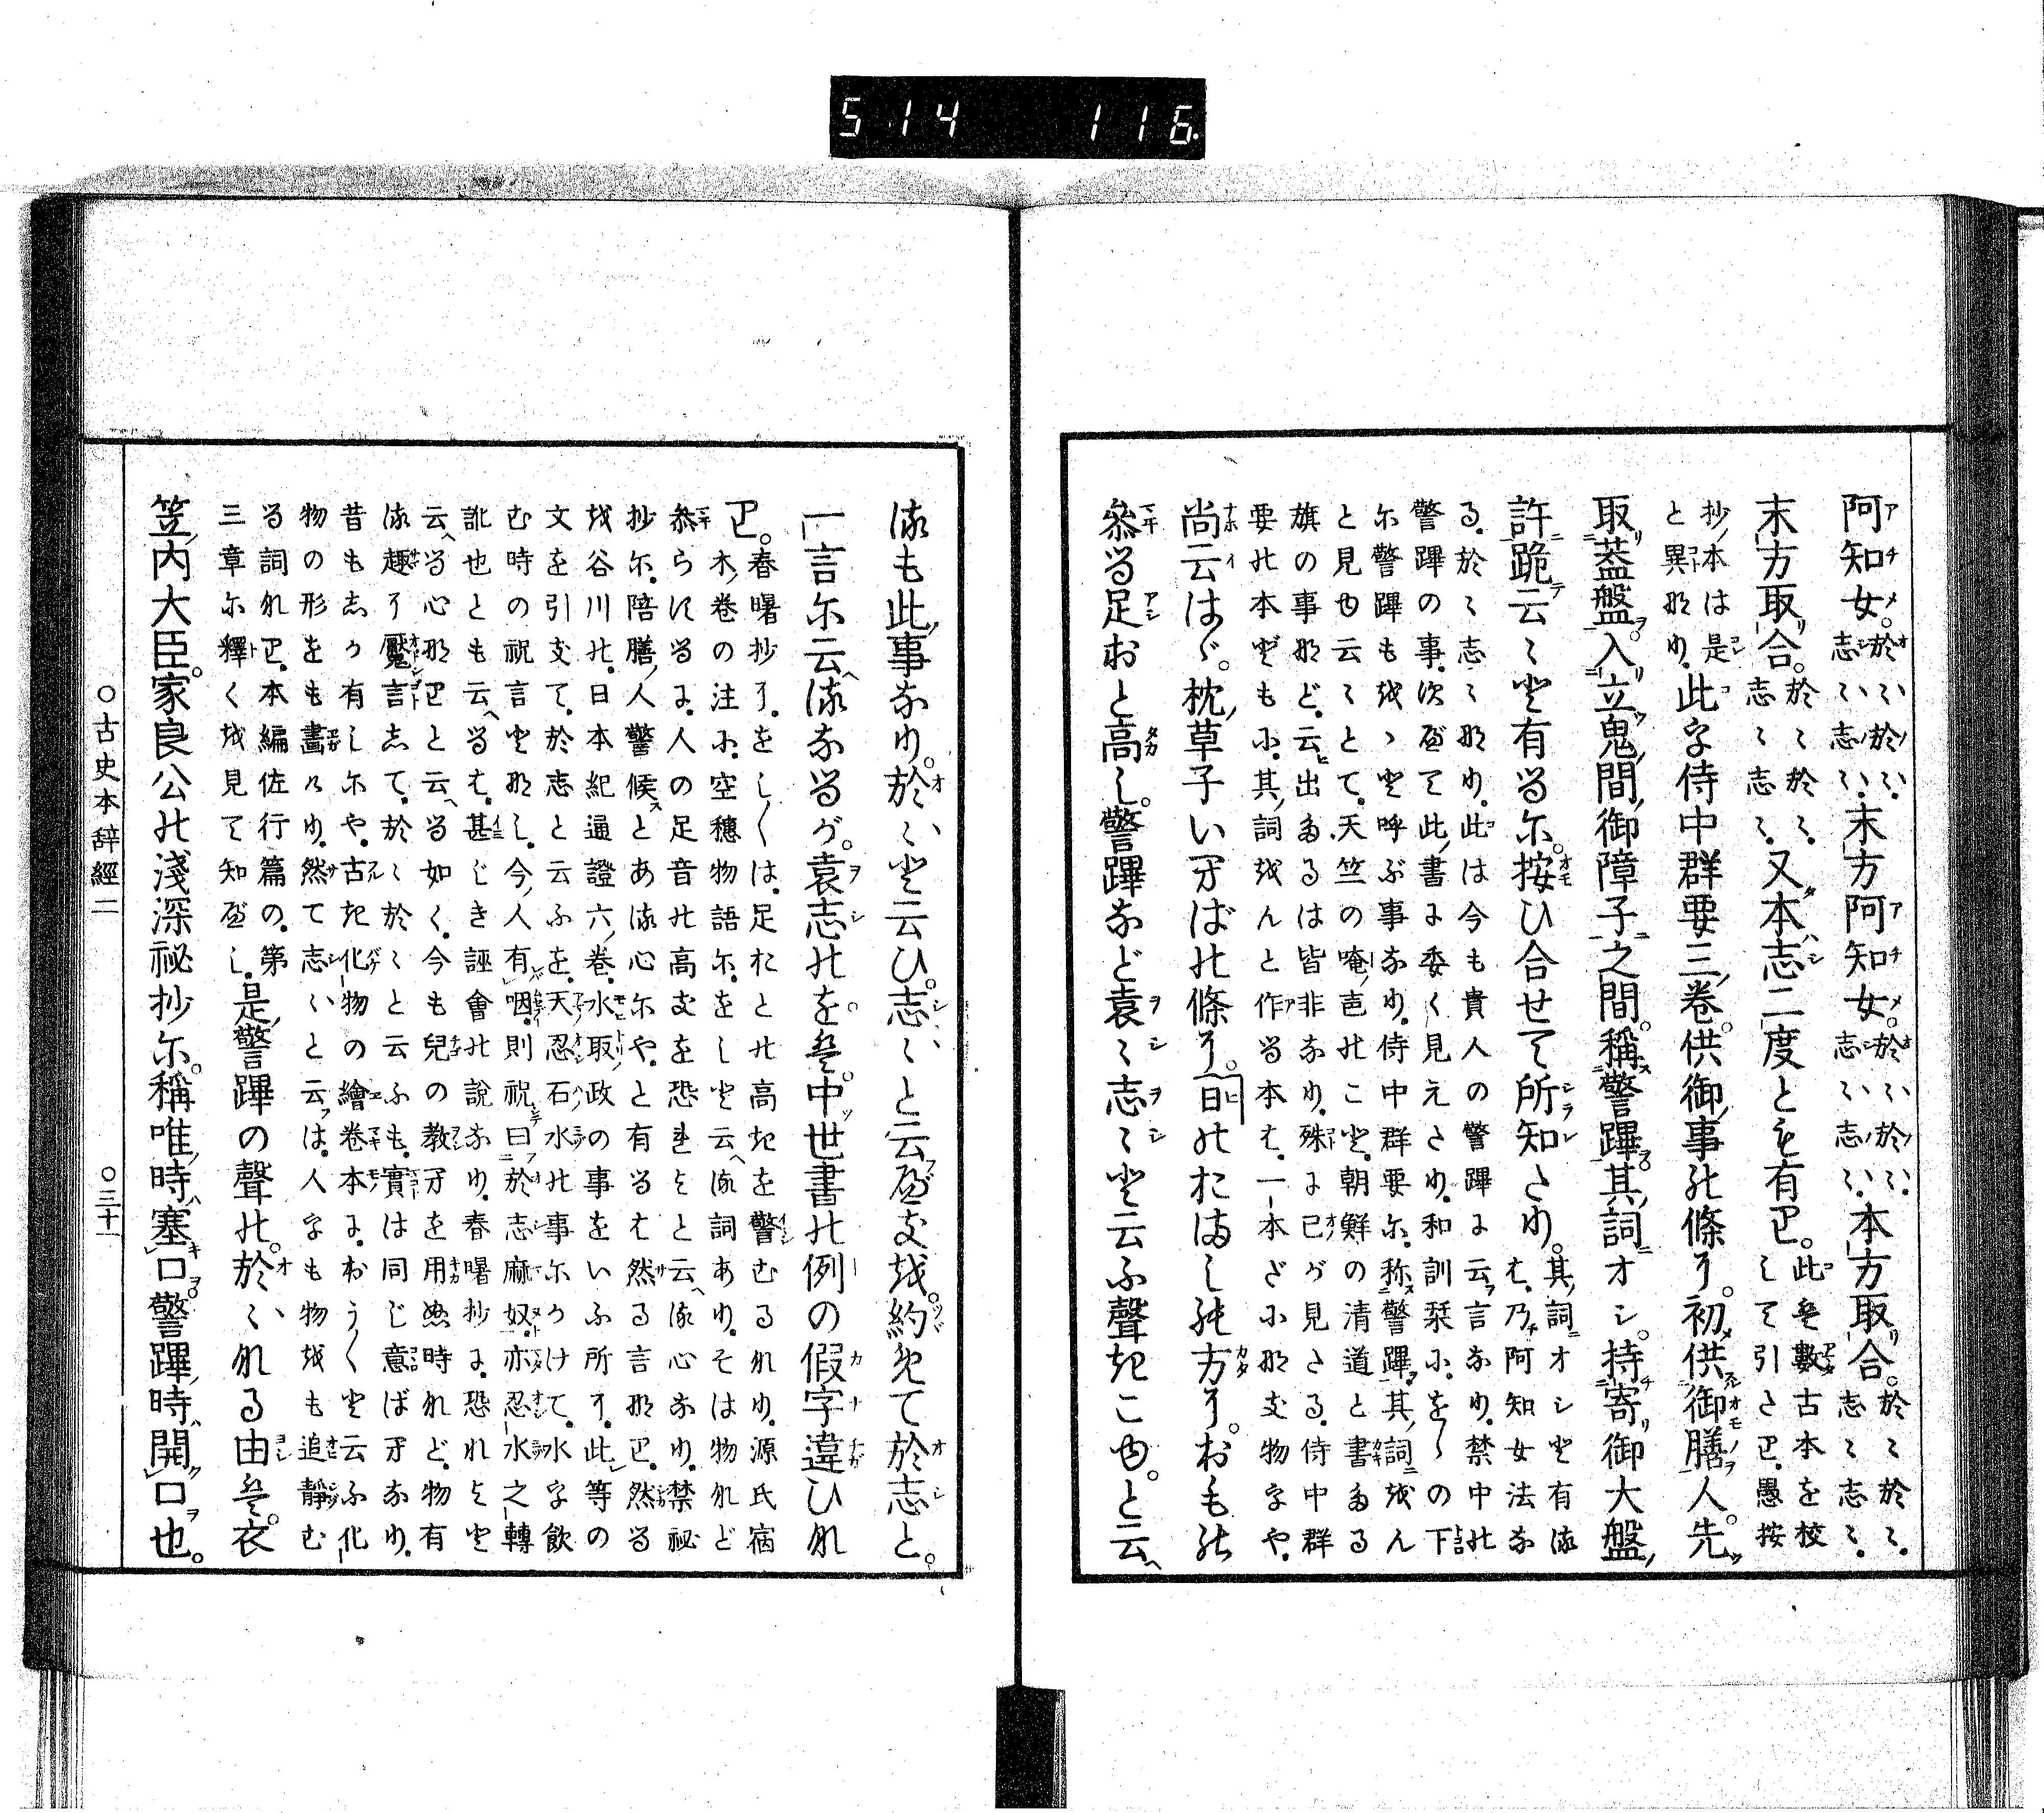 514 116
阿知女。於〻於〻。志〻志〻。末方阿知女。於〻於〻。志〻志〻。本方取合。於〻於〻。志〻志〻。
末方取合。於〻於〻。志〻志〻。又本志二度とも有り。此は數古本を校して引さり。愚按
抄本は是と異なり。此を侍中群要三卷。供御事の條に。初供御膳人。先
取蓋盤。入立鬼間御障子之間。稱警蹕。其詞オシ。持寄御大盤
許跪云〻と有るに。按ひ合せて所知たり。其詞オシと有るは、乃阿知女法なる
る。於〻志〻なり。此は今も貴人の警蹕に云言なり。禁中の
警蹕の事。次びて此書に委く見えたり。和訓栞に。をしの下
に警蹕も をゝと呼ぶ事なり。侍中群要に。称警蹕。其詞をん
と見ゆ云〻とて。天竺の唵𠮷のこと。朝鮮の清道と書たる
旗の事など。云出たるは皆非なり。殊に己が見たる。侍中群
要の本どもに。其詞をんと作る本は。一本だになき物をや。
尚云はゞ。枕草子いはばの條に。日のおまし能方に。おもの
參る足おと高し。警蹕など袁〻志〻と云ふ聲きこゆ。と云
るも此事なり。於〻と云ひ。志〻と云べきを。約めて於志と。
一言に云るなるが。袁志のをは。中世書の例の假字違ひな
り。春曙抄に。をし〱は。足おとの高きを警むるなり。源氏宿
木卷の注に。空穗物語に。をしと云る詞あり。そは物など
參らするに。人の足音の高きを恐れをと云る心なり。禁秘
抄に。陪膳人警候とある心にや。と有るは然る言なり。然る
を谷川の。日本紀通證六卷。水取政の事をいふ所に。此等の
文を引きて。於志と云ふを。天忍石水の事にかけて。水を飲
む時の祝言となし。今人有咽則祝曰於志麻奴。亦忍水之轉
訛也とも云へるは。甚じき誣會の說なり。春曙抄に。恐れをと
云へる心なりと云へる如く。今も兒の教方を用ぬ時なれど。物有
る趣に魘言して。於〻於〻と云ふも。實は同じ意ばへなり。
昔もしか有しにや。古き化物の繪卷本に。おうくと云ふ化
物の形をも畫けり。然て志〻と云は。人をも物をも追靜む
る詞なり。本編佐行篇の。第
三章に釋くを見て知べし。是警蹕の聲の。於〻なる由は。衣
笠內大臣。家良公の淺深祕抄に。稱唯時塞口。警蹕時開口也。
○古史本辭經二 ○三十一